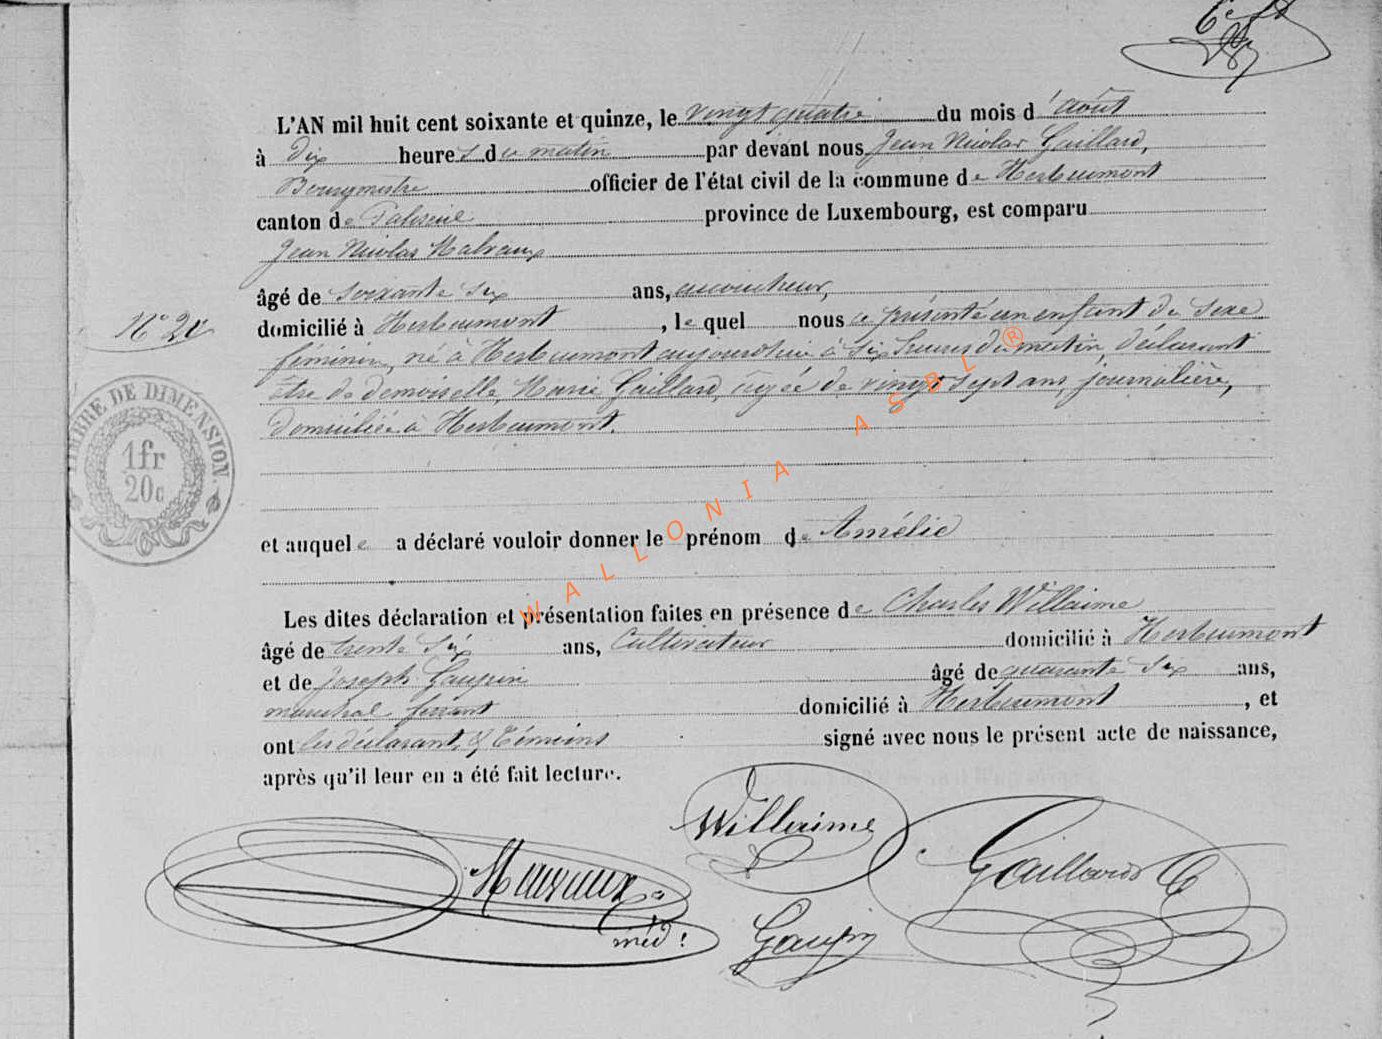 L'AN mil huit cent soixante et quinze, le vingt quatre du mois d'août
à dix heures du matin par devant nous Jean Nicolas Gaillard,
Bourgmestre officier de l'état civil de la commune de Herbeumont
canton de Paliseul province de Luxembourg, est comparu
Jean Nicolas
âgé de soixante six ans, accoucheur,
N°
domicilié à Herbeumont, lequel nous a présenté un enfant de sexe
féminin, né à Herbeumont aujourd'hui à six heures du matin, déclarant
être de demoiselle Marie Gaillard, âgée de vingt sept ans, journalière,
domiciliée à Herbeumont.
TIMBRE DE DIMENSION.
1fr
20c
et auquel e a déclaré vouloir donner le prénom de Amélie
Les dites déclaration et présentation faites en présence de Charles Willaime
âgé de trente six ans, Cultivateur domicilié à Herbeumont
et de Joseph Goupin âgé de quarante six ans,
maréchal ferrant domicilié à Herbeumont, et
ont les déclarant & témoins signé avec nous le présent acte de naissance,
après qu'il leur en a été fait lecture.
Willaime
Gaillard
méd:
Goupin
WALLONIA ASBL ®